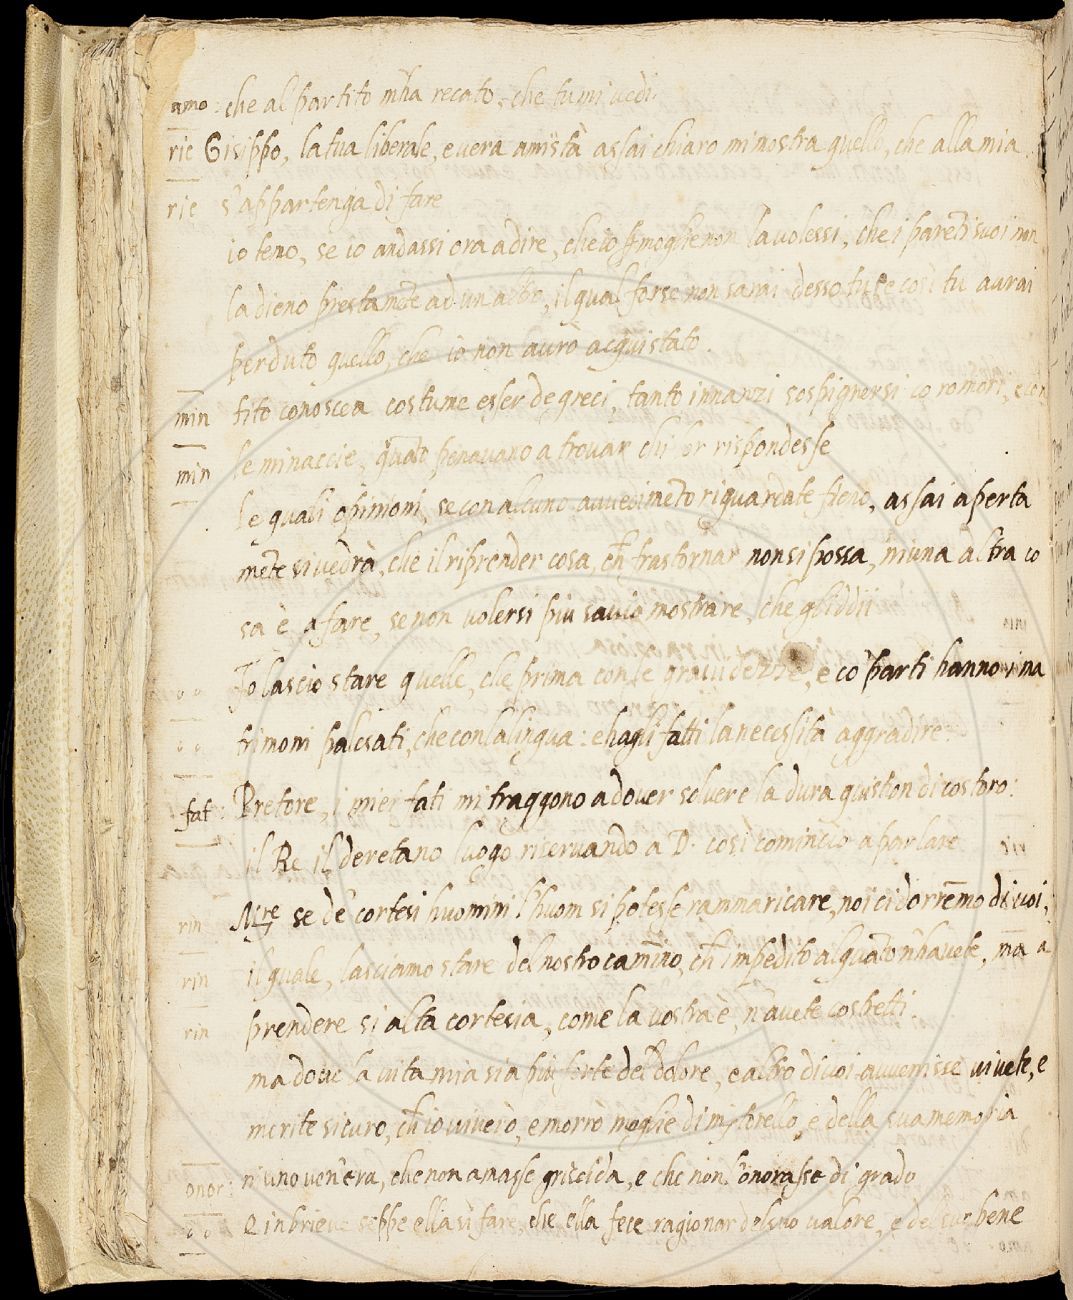 amo: che al partito mha recato, che tu mi vedi.
rie Gisippo, la tua liberale, e vera amistà assai chiaro mi mostra quello, che alla mia
rie s'appartenga di fare
io temo, se io andassi ora a dire, che io p moglie non la volessi, che i pareti suoi non
la dieno prestamete ad un altro, il qual forse non sarai desso tu, e così tu aurai
perduto quello, che io non aurò acquistato.
min tito conoscea costume esser de greci, tanto innanzi sospignersi co romori, e con
min le minaccie, quāto penavano a trovar chi lor rispondesse
le quali opinioni, se con alcuno avvedimeto riguardate fieno, assai aperta
mēte si vedrà, che il riprender cosa, ch frastornar non si possa, niuna altra co
sa è a fare, se non volersi piu savio mostrare, che gliddii
Io lascio stare quelle, che prima con le gravidezze, e co parti hanno i ma
trimoni palesati, che con la lingua: e hagli fatti la necessità aggradire
fat: Pretore, i miei fati mi traggono a dover solvere la dura quistion di costoro:
il Re il deretano luogo riservando a D. cosi cominciò a parlare
rin Mre se de cortesi huomini l'huom si potesse rammaricare, noi ci dorremo di voi,
rin il quale, lasciamo stare del nostro camino, ch impedito alquāto n'havete, ma a
rin prendere si alta cortesia, come la vostra è, n'avete costretti.
ma dove la vita mia sia più forte del dolore, e altro di voi avvenisse vivete, e
morite sicuro, ch io viverò, e morrò moglie di m. torello, e della sua memoria
onor: niuno ven'era, che non amasse griselda, e che non l'onorasse di grado
e in brieve seppe ella si fare, che ella fece ragionar del suo valore, e del suo bene